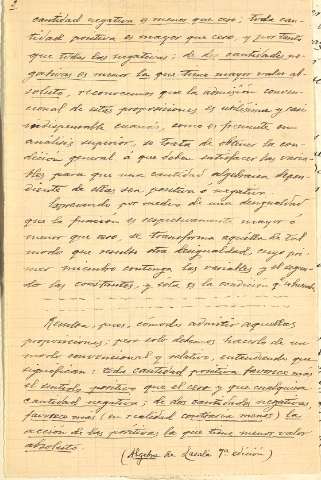 cantidad negativa es menor que cero; toda can-
tidad positiva es mayor que cero, y por tanto
que todas las negativas; de dos cantidades ne-
gativas es menor la que tiene mayor valor ab-
soluto, reconocemos que la admisión conven-
cional de estas proposiciones es utilísima y casi
indispensable cuando, como es frecuente en
análisis superior, se trata de obtener la con-
dición general á que deben satisfacer las varia-
bles para que una cantidad algebraica depen-
diente de ellas sea positiva ó negativa.
Expresando por medio de una desigualdad
que la función es respectivamente mayor ó
menor que cero, se transforma aquélla de tal
modo que resulte otra desigualdad, cuyo pri-
mer miembro contenga las variables y el segun-
do las constantes, y esta es la condición q. se busca.
Resulta, pues, cómodo admitir aquellas
proposiciones; pero solo debemos hacerlo de un
modo convencional y relativo, entendiendo que
significan: toda cantidad positiva favorece más
el sentido positivo que el cero y que cualquiera
cantidad negativa; de dos cantidades negativas,
favorece más (en realidad contraría menos) la
acción de las positivas la que tiene menor valor
absoluto.
(Algebra de Lasala 7ª edición)